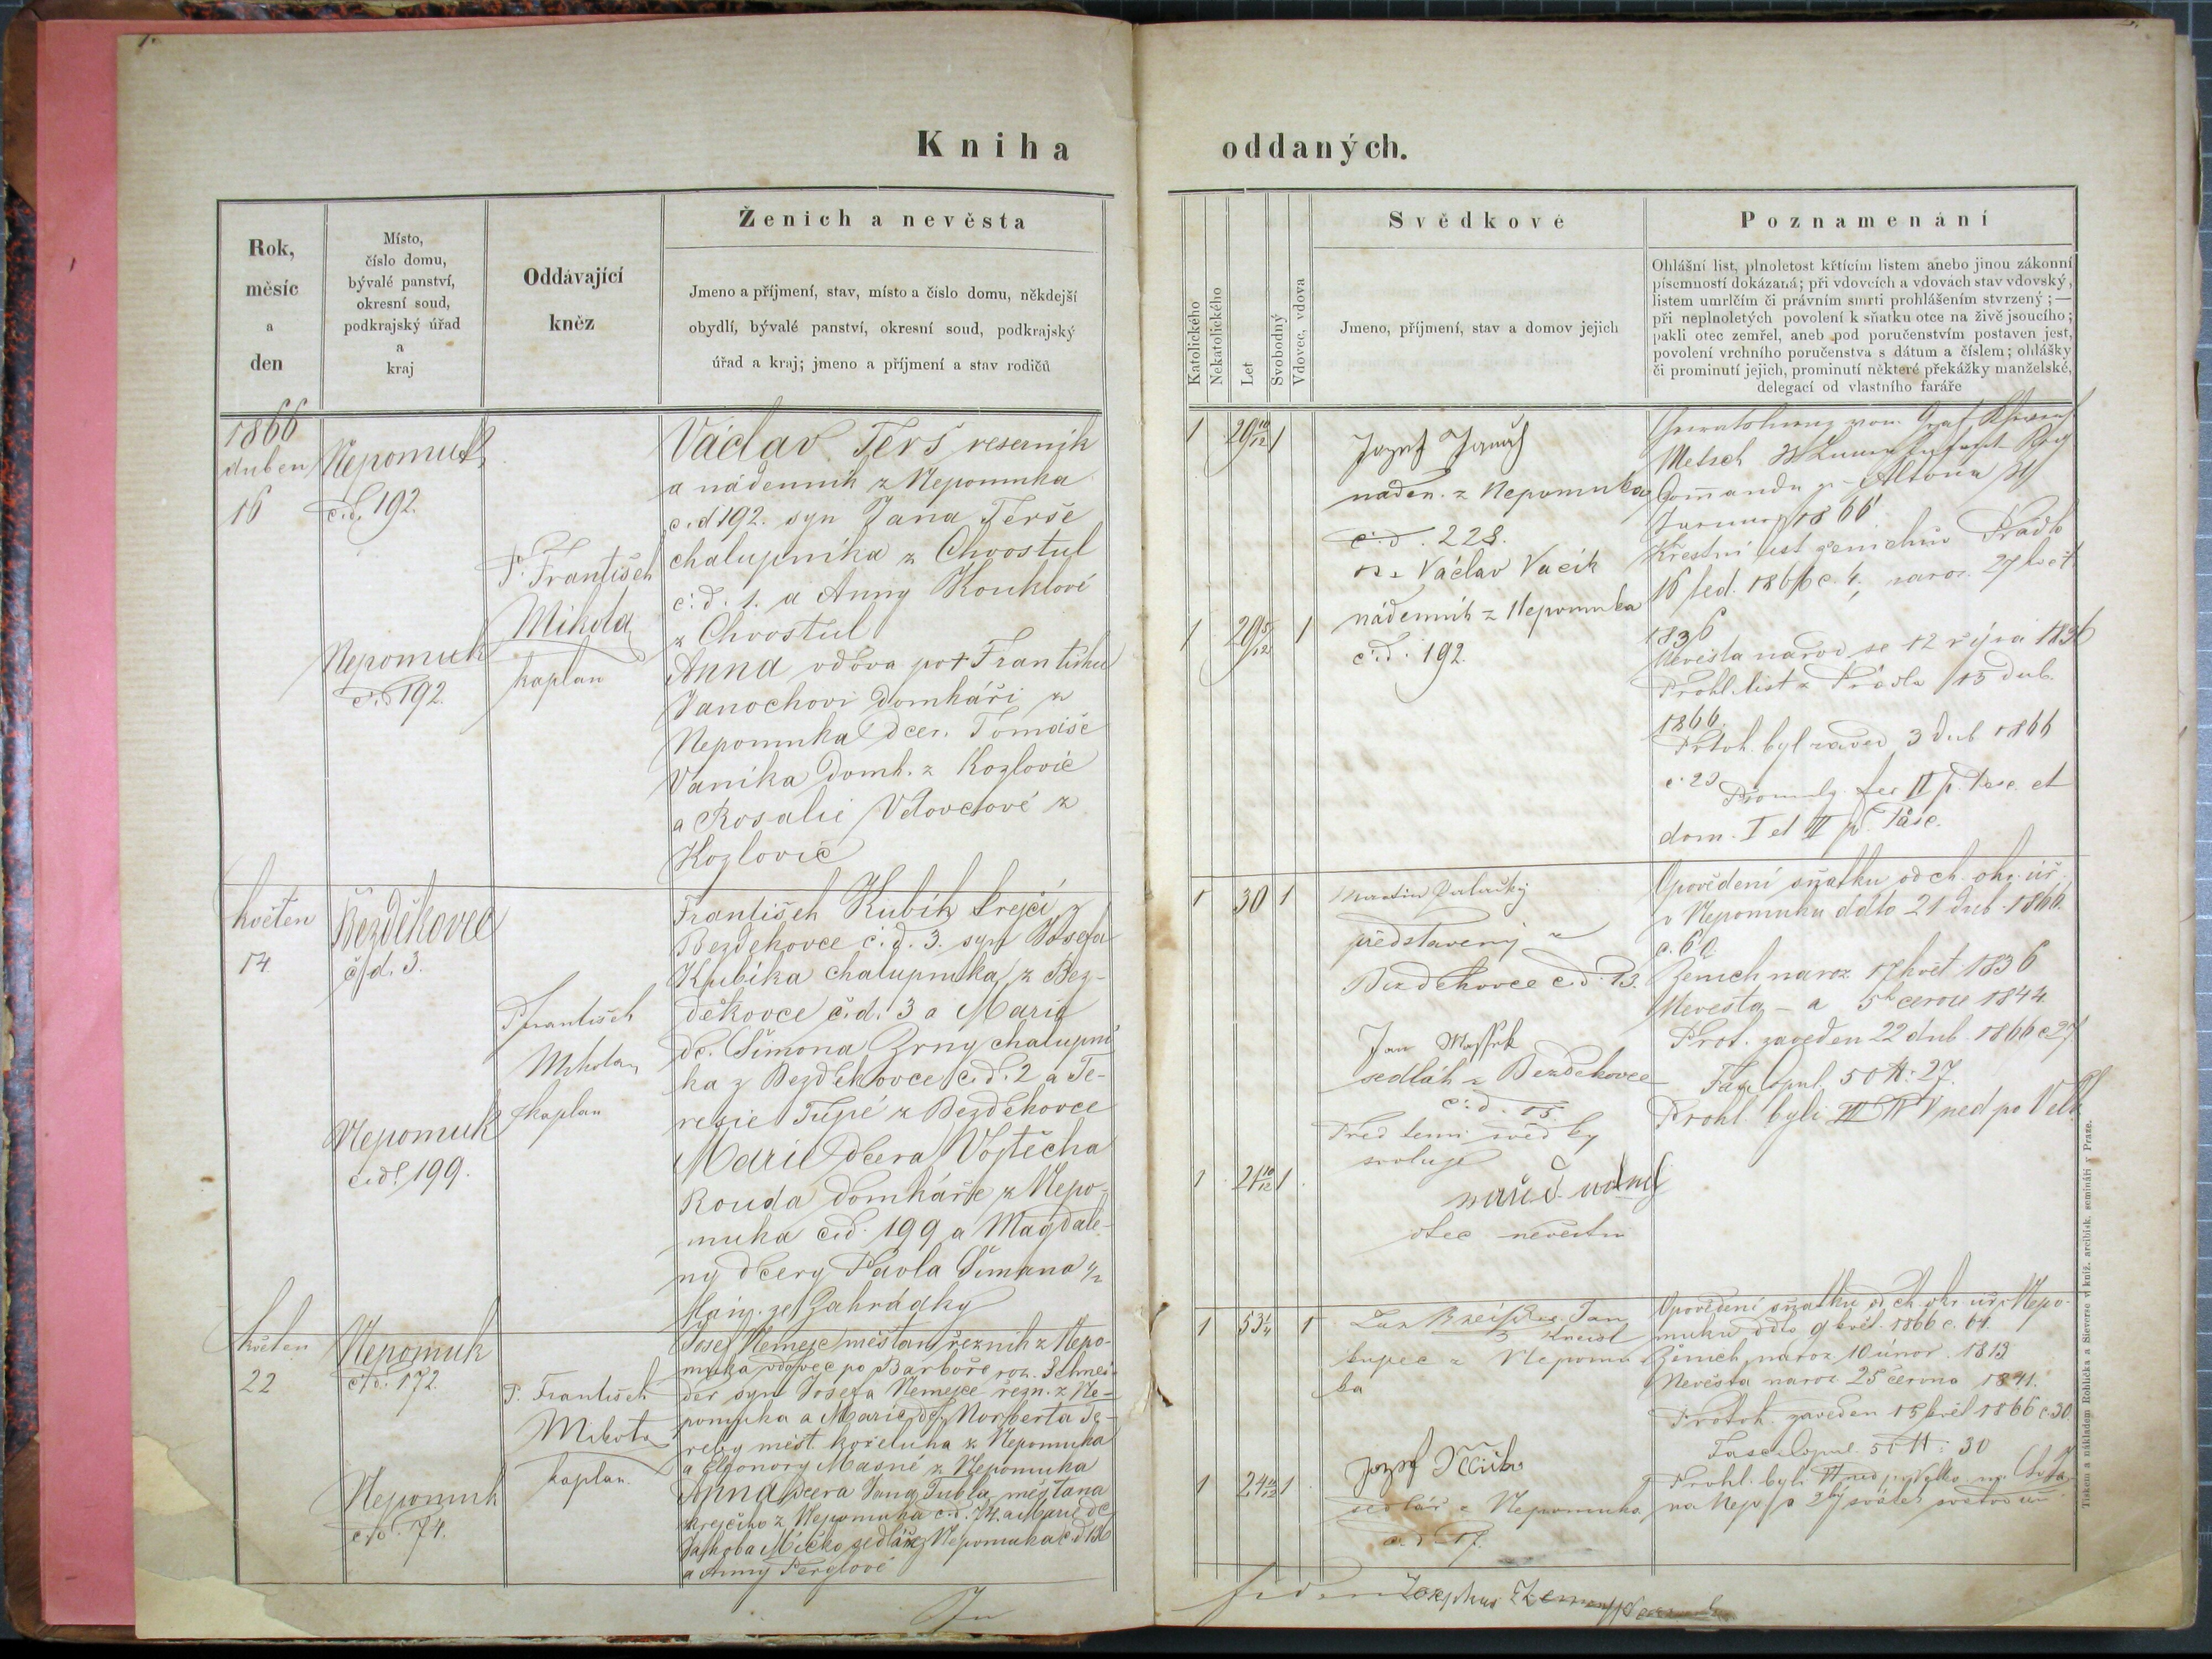 1.
Kniha oddaných.
Rok,
měsíc
a
den
Místo,
číslo domu,
bývalé panství,
okresní soud,
podkrajský úřad
a
kraj
Oddávající
kněz
Ženich a nevěsta
Jmeno a příjmení, stav, místo a číslo domu, někdejší
obydlí, bývalé panství, okresní soud, podkrajský
úřad a kraj; jmeno a příjmení a stav rodičů
Katolického
Nekatolického
Let
Svobodný
Vdovec, vdova
Svědkové
Jmeno, příjmení, stav a domov jejich
Poznamenání
Ohlášní list, plnoletost křtícím listem anebo jinou zákonní
písemností dokázaná; při vdovcích a vdovách stav vdovský,
listem umrlčím či právním smrti prohlášením stvrzený; —
při neplnoletých povolení k sňatku otce na živě jsoucího;
pakli otec zemřel, aneb pod poručenstvím postaven jest,
povolení vrchního poručenstva s dátum a číslem; ohlášky
či prominutí jejich, prominutí některé překážky manželské,
delegací od vlastního faráře
1866
duben
16
Nepomuk
č.d. 192.
P. František
Mikota
kaplan
Václav Terš reserník
a nádenník z Nepomuka
č.d 192. syn Jana Terše
chalupníka z Chvostul
č.d. 1. a Anny Kouklové
z Chvostul
Nepomuk
č.d 192.
Anna vdova po + Františku
Janochovi domkáři z
Nepomuka dcer. Tomáše
Vaníka domk. z Kozlovic
a Rosalie Vdovcové z
Kozlovic
1 29 10/12 1
1 29 5/12 1
Jozef
náden. z Nepomuka
č.d. 228.
Václav Vacík
nádenník z Nepomuka
č.d. 192.
Metsch
Commando Altona
1866
Křestní list ženichův Prádlo
16 led. 1866 č. 4, naroz. 27 květ
1836
Nevěsta narod se 12 října 1836
Prohl. list z Prádla 15 dub.
1866.
Protok. byl zaved 3 dub 1866
č. 23
Promulg. fer II p. Pasc. et
dom. I et II p. Pasc.
květen
14
Bezděkovec
č.d. 3.
P František
Mikota
kaplan
František Kubík krejčí z
Bezdekovce č.d. 3. syn Josefa
Kubíka chalupníka z Bez-
děkovce č.d. 3 a Marie
dc. Šimona Zrny chalupní
ka z Bezděkovce č.d. 2 a Te-
resie Tupé z Bezděkovce
Nepomuk
č.d. 199.
Marie dcera Vojtěcha
Rouda domkáře z Nepo-
muka č.d. 199 a Magdale-
ny dcery Pavla Šimana
ze Zahrádky
1 30 1
1 21 10/12 1
Martin
představený z
Bezděkovce č.d. 13.
Jan
sedlák z Bezdekovce
č.d. 15.
Před těmi svědky
svoluje
otec nevěstin
Opovědení sňatku od ch. okr. úř.
v Nepomuku ddto 21 dub. 1866.
č. 60
Ženich naroz 17 květ 1836
Nevěsta – a 5 června 1844
Prot. zaveden 22 dub. 1866 č. 27
Fasc. Copul. 50 N: 27.
Prohl. byli III IV V ned po Velk
květen
22
Nepomuk
č.d. 172.
P. František
Mikota
kaplan.
Josef Nemejc měšťan řezník z Nepo-
muka vdovec po Barboře roz. Schnei-
der syn Josefa Nemejce řezn. z Ne-
pomuka a Marie dc. Norberta Te-
reby měšt. koželuha z Nepomuka
a Eleonory Masné z Nepomuka
Nepomuk
č.d. 74.
Anna dcera Jana Tubla, měšťana
krejčího z Nepomuka č.d. 74. a Marie dc
Jakoba Míčko sedláře z Nepomuka č.d 136
a Anny Perglové
1 53 1/4 1
1 24 11/12 1
Jan
kupec z Nepomu
ka
Jozef
sedlář z Nepomuka
č.d. 17.
Opovědení sňatku od ch. okr. úř. v Nepo-
muku ddto 9 květ. 1866 č. 64.
Ženich naroz 10 únor. 1813
Nevěsta naroz 25 června 1841.
Protok. zaveden 15 květ 1866 č. 30.
Fasc. Copul. 50 N: 30
Tiskem a nákladem Rohlíčka a Sieverse v kníž. arcibisk. semináři v Praze.